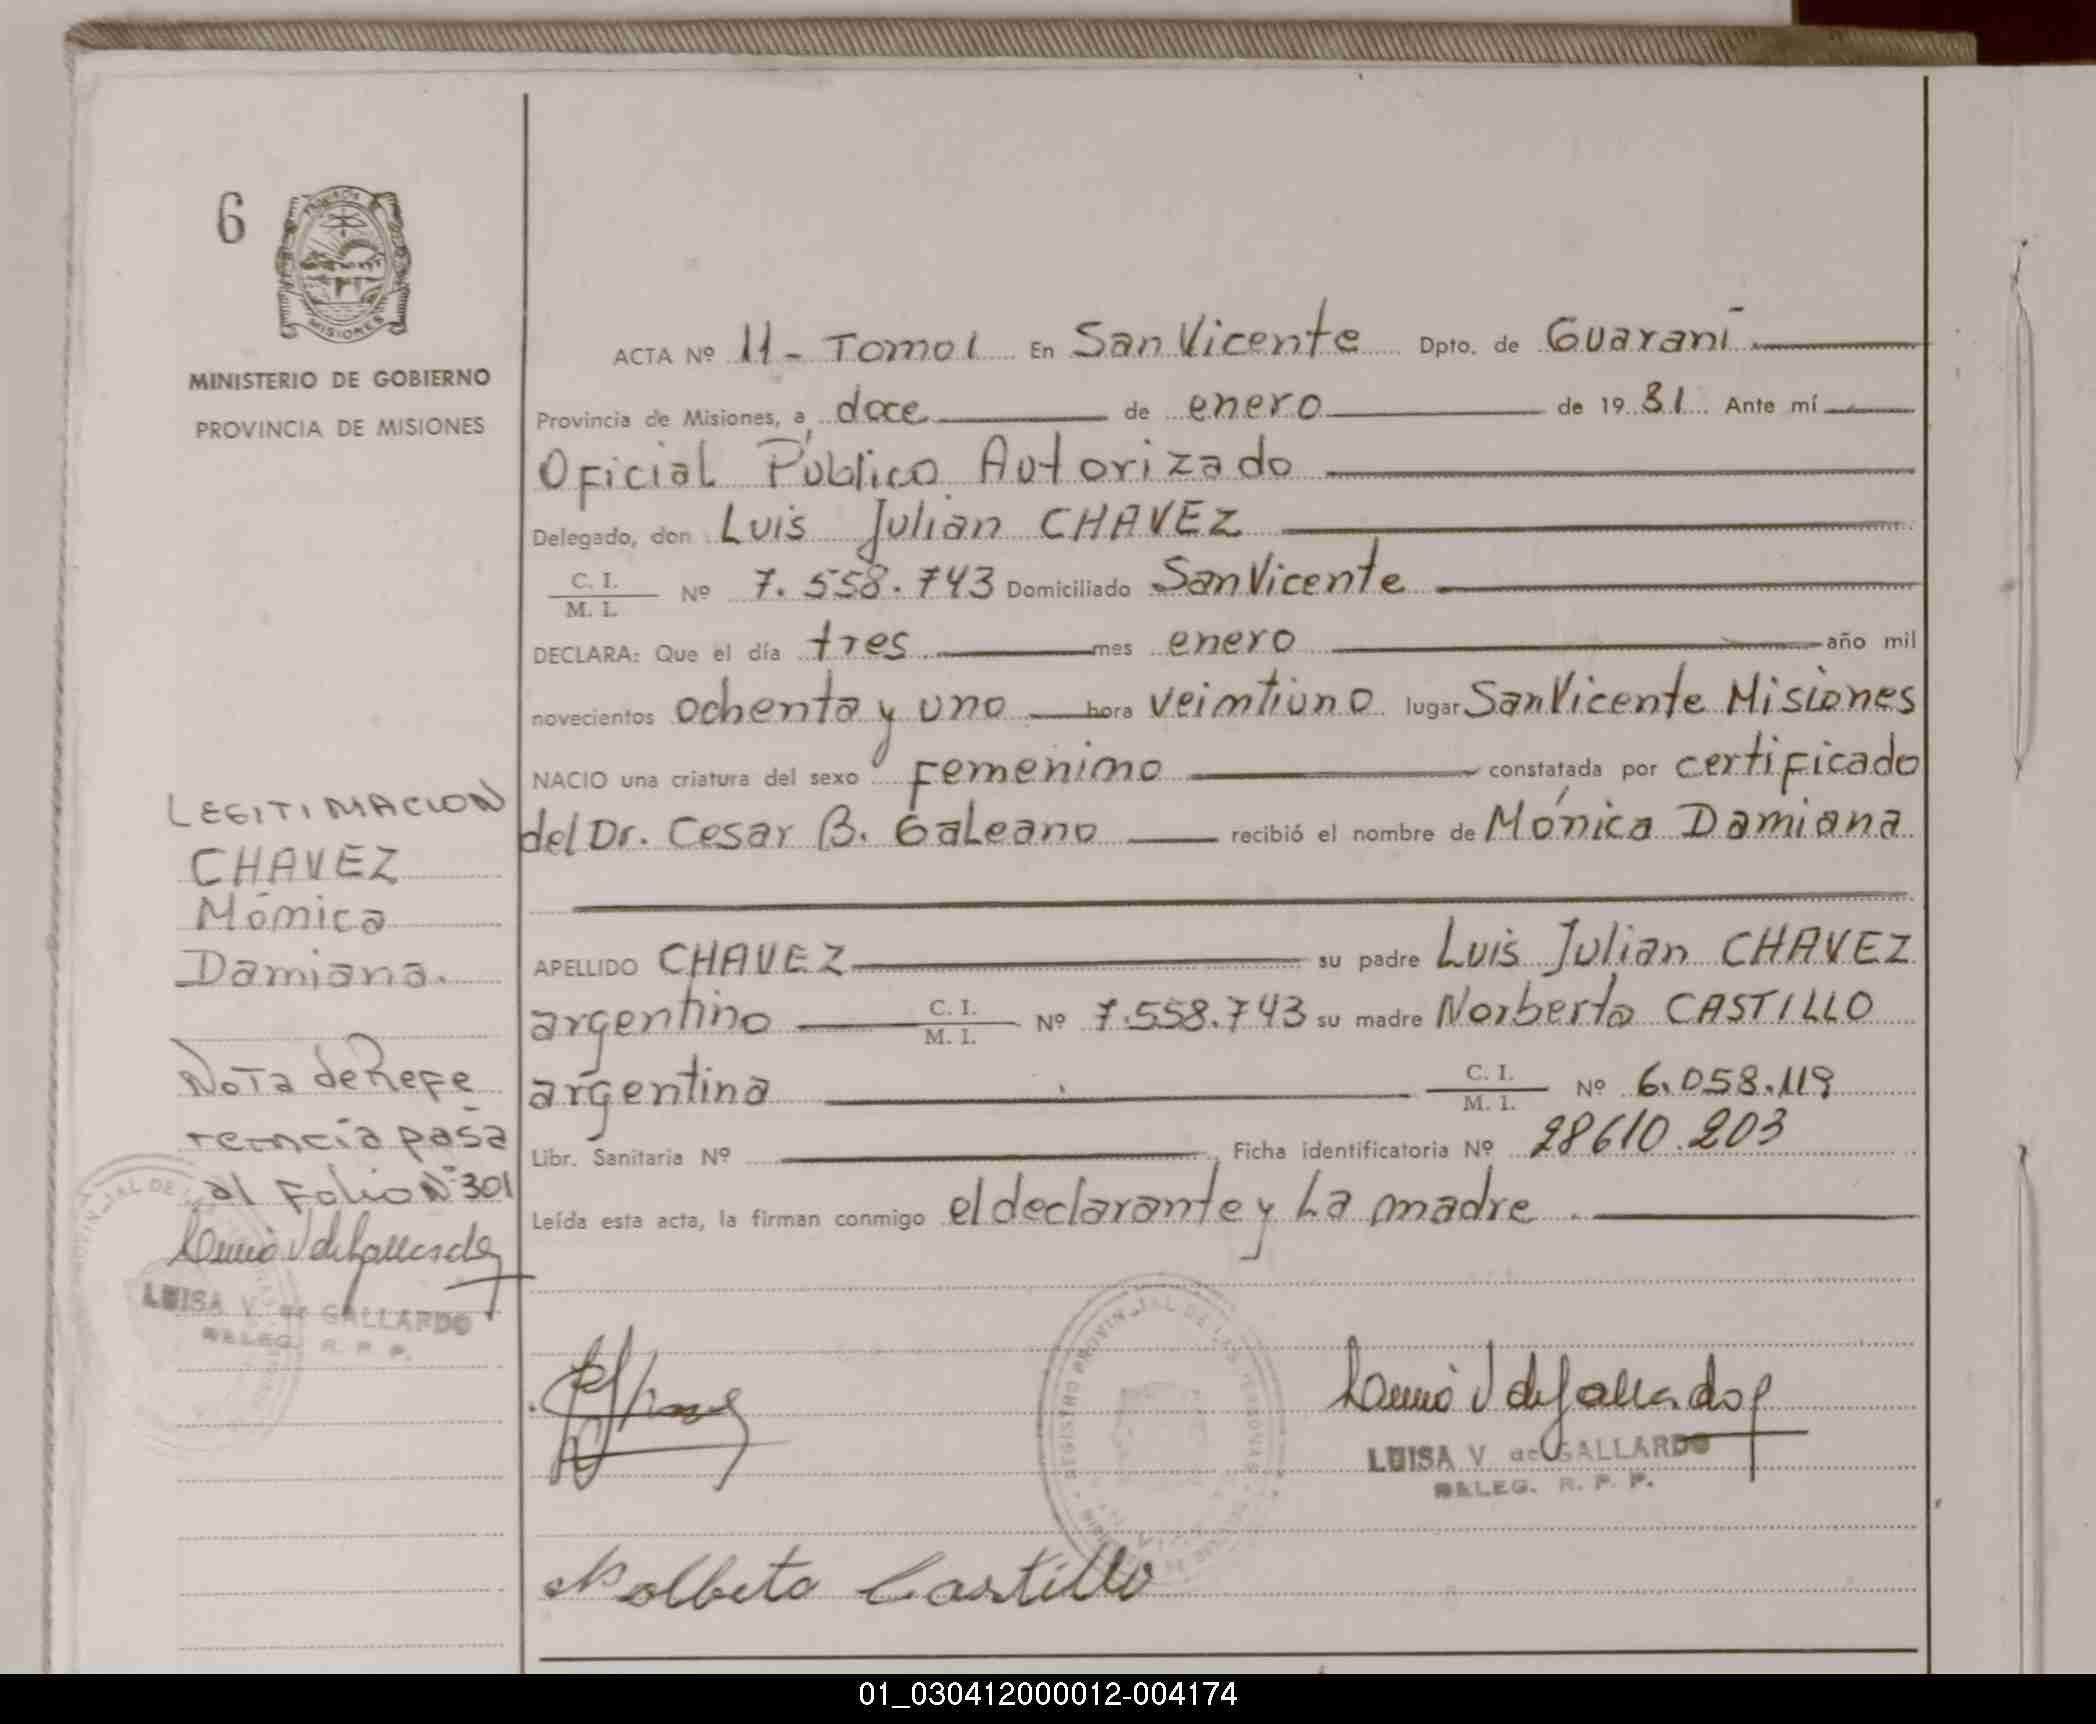 6
MINISTERIO DE GOBIERNO
PROVINCIA DE MISIONES
LEGITIMACION
CHAVEZ
Mónica
Damiana.
Nota de Refe
rencia pasa
al Folio Nº 301
LUISA V. de GALLARDO
DELEG. R. P. P.
ACTA Nº 11 - Tomo I En San Vicente Dpto. de Guaraní
Provincia de Misiones, a doce de enero de 19 81 Ante mí
Oficial Público Autorizado
Delegado, don Luis Julian CHAVEZ
C. I.
M. I. Nº 7.558.743 Domiciliado San Vicente
DECLARA: Que el día tres mes enero año mil
novecientos ochenta y uno hora veimtiuno lugar San Vicente Misiones
NACIO una criatura del sexo femenimo constatada por certificado
del Dr. Cesar B. Galeano recibió el nombre de Mónica Damiana
APELLIDO CHAVEZ su padre Luis Julian CHAVEZ
argentino C. I.
M. I. Nº 7.558.743 su madre Norberta CASTILLO
argentina C. I.
M. I. Nº 6.058.119
Libr. Sanitaria Nº Ficha identificatoria Nº 28610.203
Leída esta acta, la firman conmigo el declarante y la madre
REGISTRO PROVINCIAL DE LAS PERSONAS
LUISA V. de GALLARDO
DELEG. R. P. P.
Nolbeta Castillo
01_030412000012-004174